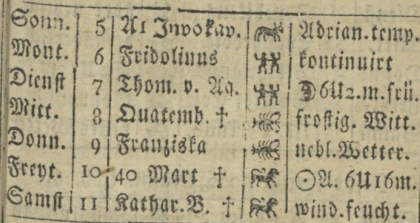 Sonn. 5 A1 Invokav. Adrian. temp.
Mont. 6 Fridolinus kontinuirt
Dienst 7 Thom. v. Aq. ☽ 6U2.m.frü.
Mitt. 8 Quatemb. † frostig. Witt.
Donn. 9 Franziska nebl. Wetter.
Freyt. 10 40 Mart † ☉A. 6U16m.
Samst 11 Kathar. B. † wind. feucht.